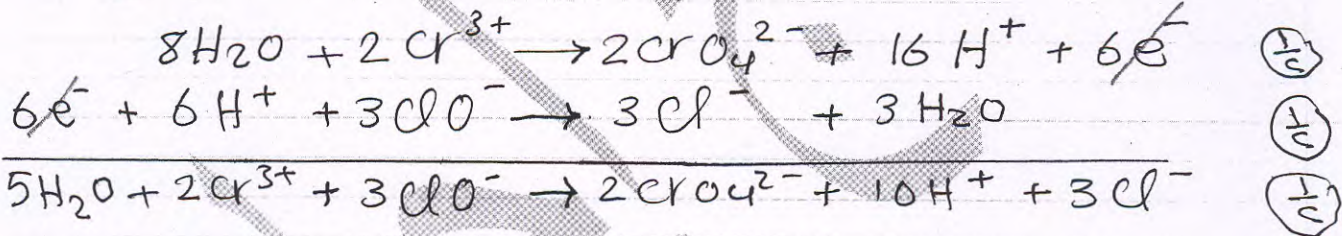 8H₂O + 2Cr³⁺ → 2CrO₄²⁻ + 16H⁺ + 6e⁻ ½
6e⁻ + 6H⁺ + 3ClO⁻ → 3Cl⁻ + 3H₂O ½
5H₂O + 2Cr³⁺ + 3ClO⁻ → 2CrO₄²⁻ + 10H⁺ + 3Cl⁻ ½